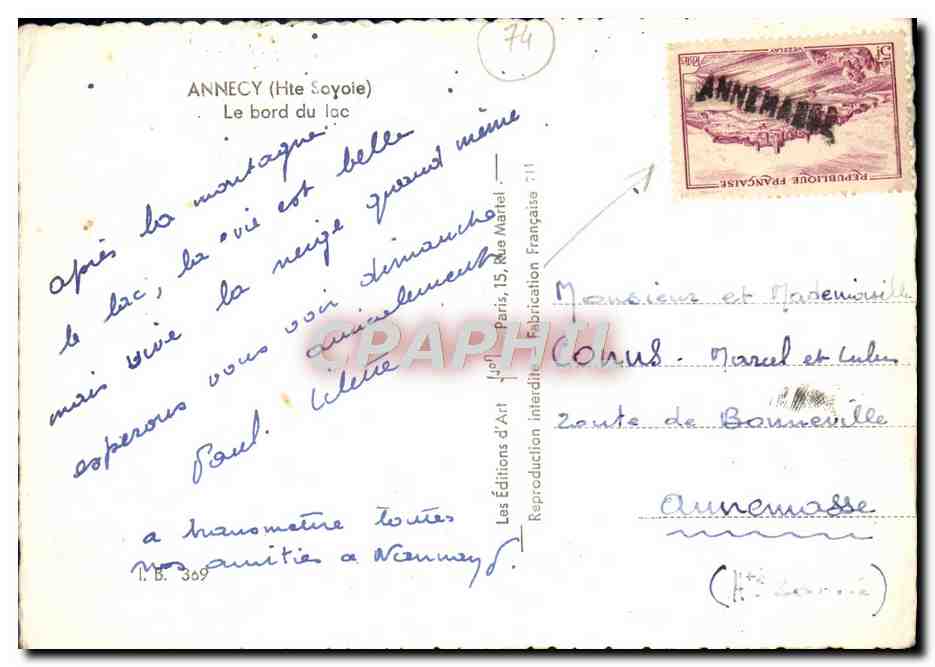 74
ANNECY (Hte Savoie)
Le bord du lac
après la montagne
le lac, la vie est belle
mais vive la neige quand même
esperons vous voir dimanche
amicalement
Paul.
a transmettre toutes
nos amitiés a
I. B. 369
Les Éditions d'Art Paris, 15, Rue Martel
Reproduction interdite Fabrication Française
CPAPHIL
5F
VEZELAY
RÉPUBLIQUE FRANÇAISE
POSTES
ANNEMASSE
Monsieur et Mademoiselle
CONUS. Marcel et Lulu
route de Bonneville
annemasse
(Hte Savoie)